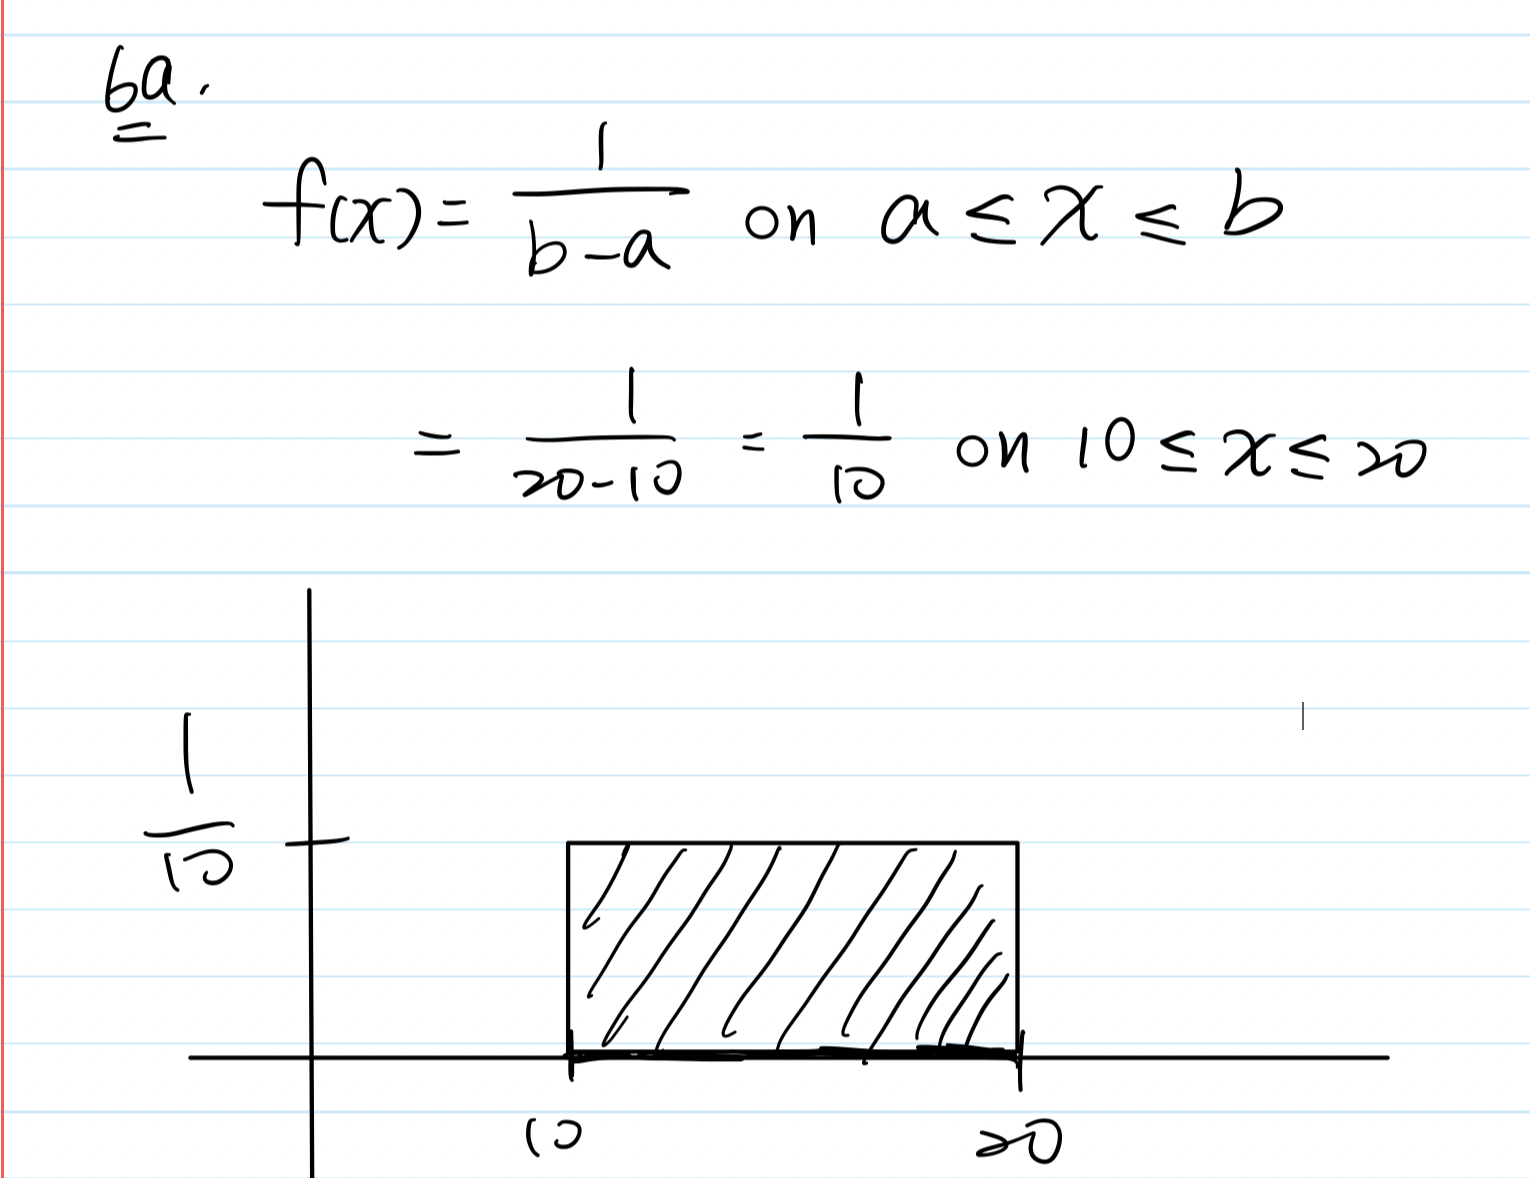 6a.
f(x) = 1/(b-a) on a ≤ x ≤ b
= 1/(20-10) = 1/10 on 10 ≤ x ≤ 20
1/10
10 20